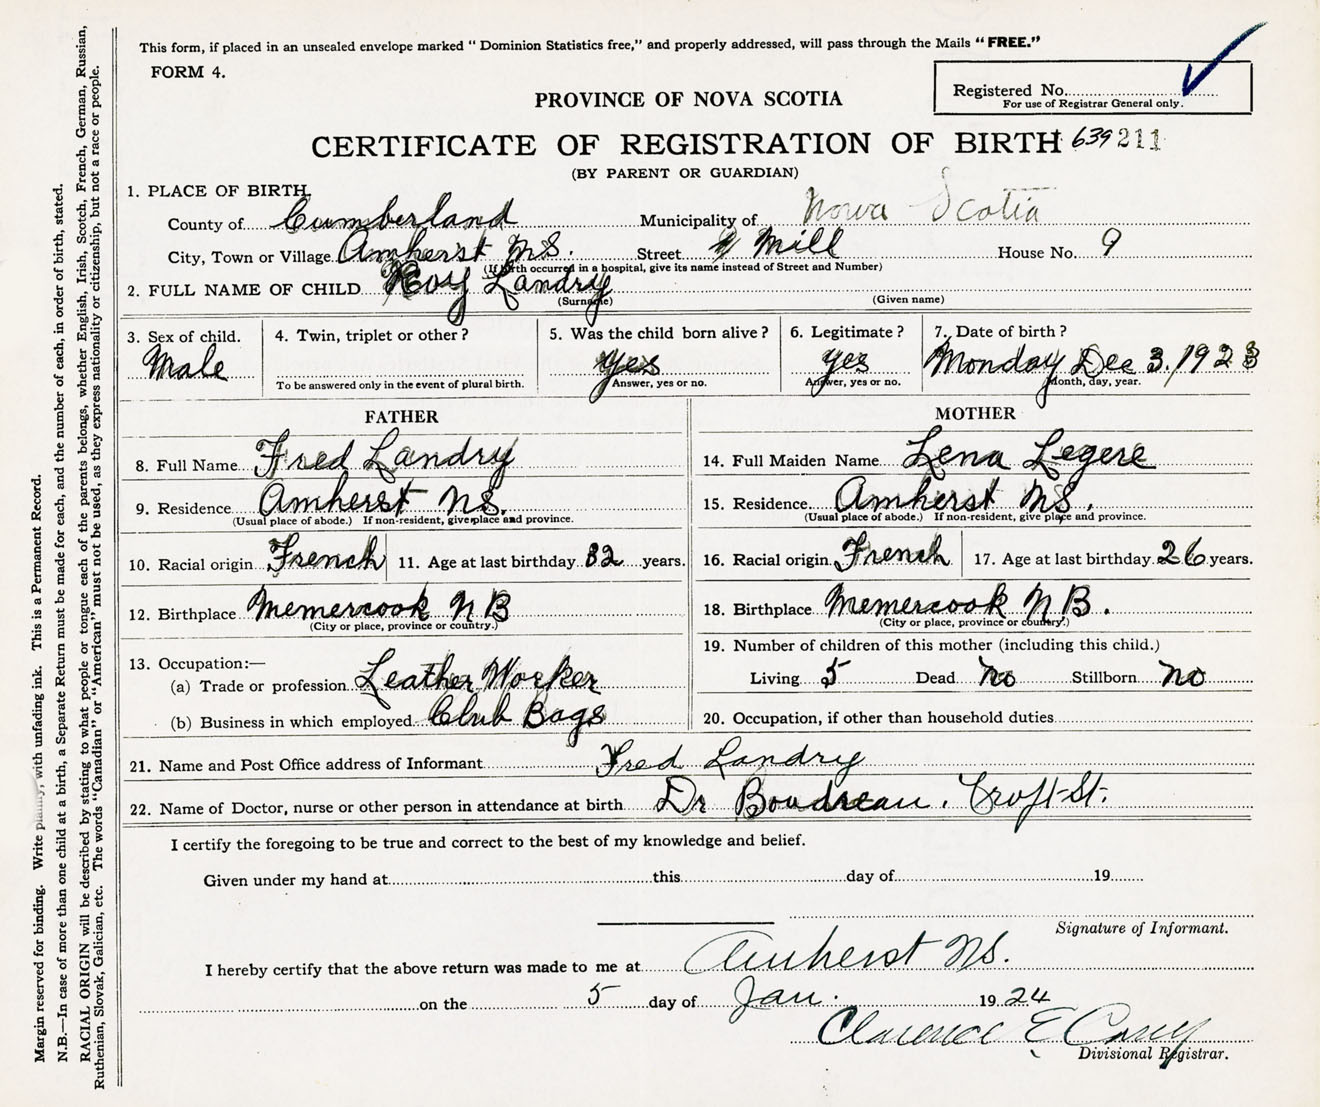 This form, if placed in an unsealed envelope marked "Dominion Statistics free," and properly addressed, will pass through the Mails "FREE."
FORM 4.
Registered No.
For use of Registrar General only.
PROVINCE OF NOVA SCOTIA
CERTIFICATE OF REGISTRATION OF BIRTH 639 211
(BY PARENT OR GUARDIAN)
1. PLACE OF BIRTH
County of Cumberland Municipality of Nova Scotia
City, Town or Village Amherst N.S. Street Mill House No. 9
(If birth occurred in a hospital, give its name instead of Street and Number)
2. FULL NAME OF CHILD Roy Landry
(Surname) (Given name)
3. Sex of child. 4. Twin, triplet or other? 5. Was the child born alive? 6. Legitimate? 7. Date of birth?
Male yes yes Monday Dec 3. 1923
To be answered only in the event of plural birth. Answer, yes or no. Answer, yes or no. Month, day, year.
FATHER MOTHER
8. Full Name Fred Landry 14. Full Maiden Name Lena Legere
9. Residence Amherst N.S. 15. Residence Amherst N.S.
(Usual place of abode.) If non-resident, give place and province. (Usual place of abode.) If non-resident, give place and province.
10. Racial origin French 11. Age at last birthday 32 years. 16. Racial origin French 17. Age at last birthday 26 years.
12. Birthplace Memercook N B 18. Birthplace Memercook N B.
(City or place, province or country.) (City or place, province or country.)
13. Occupation:— 19. Number of children of this mother (including this child.)
(a) Trade or profession Leather Worker Living 5 Dead No Stillborn No
(b) Business in which employed Club Bags 20. Occupation, if other than household duties
21. Name and Post Office address of Informant Fred Landry
22. Name of Doctor, nurse or other person in attendance at birth Dr Boudreau. Croft St.
I certify the foregoing to be true and correct to the best of my knowledge and belief.
Given under my hand at this day of 19
Signature of Informant.
I hereby certify that the above return was made to me at Amherst N.S.
on the 5 day of Jan. 19 24
Clarence E Corey
Divisional Registrar.
Margin reserved for binding. Write plainly, with unfading ink. This is a Permanent Record.
N.B.—In case of more than one child at a birth, a Separate Return must be made for each, and the number of each, in order of birth, stated.
RACIAL ORIGIN will be described by stating to what people or tongue each of the parents belongs, whether English, Irish, Scotch, French, German, Russian,
Ruthenian, Slovak, Galician, etc. The words "Canadian" or "American" must not be used, as they express nationality or citizenship, but not a race or people.